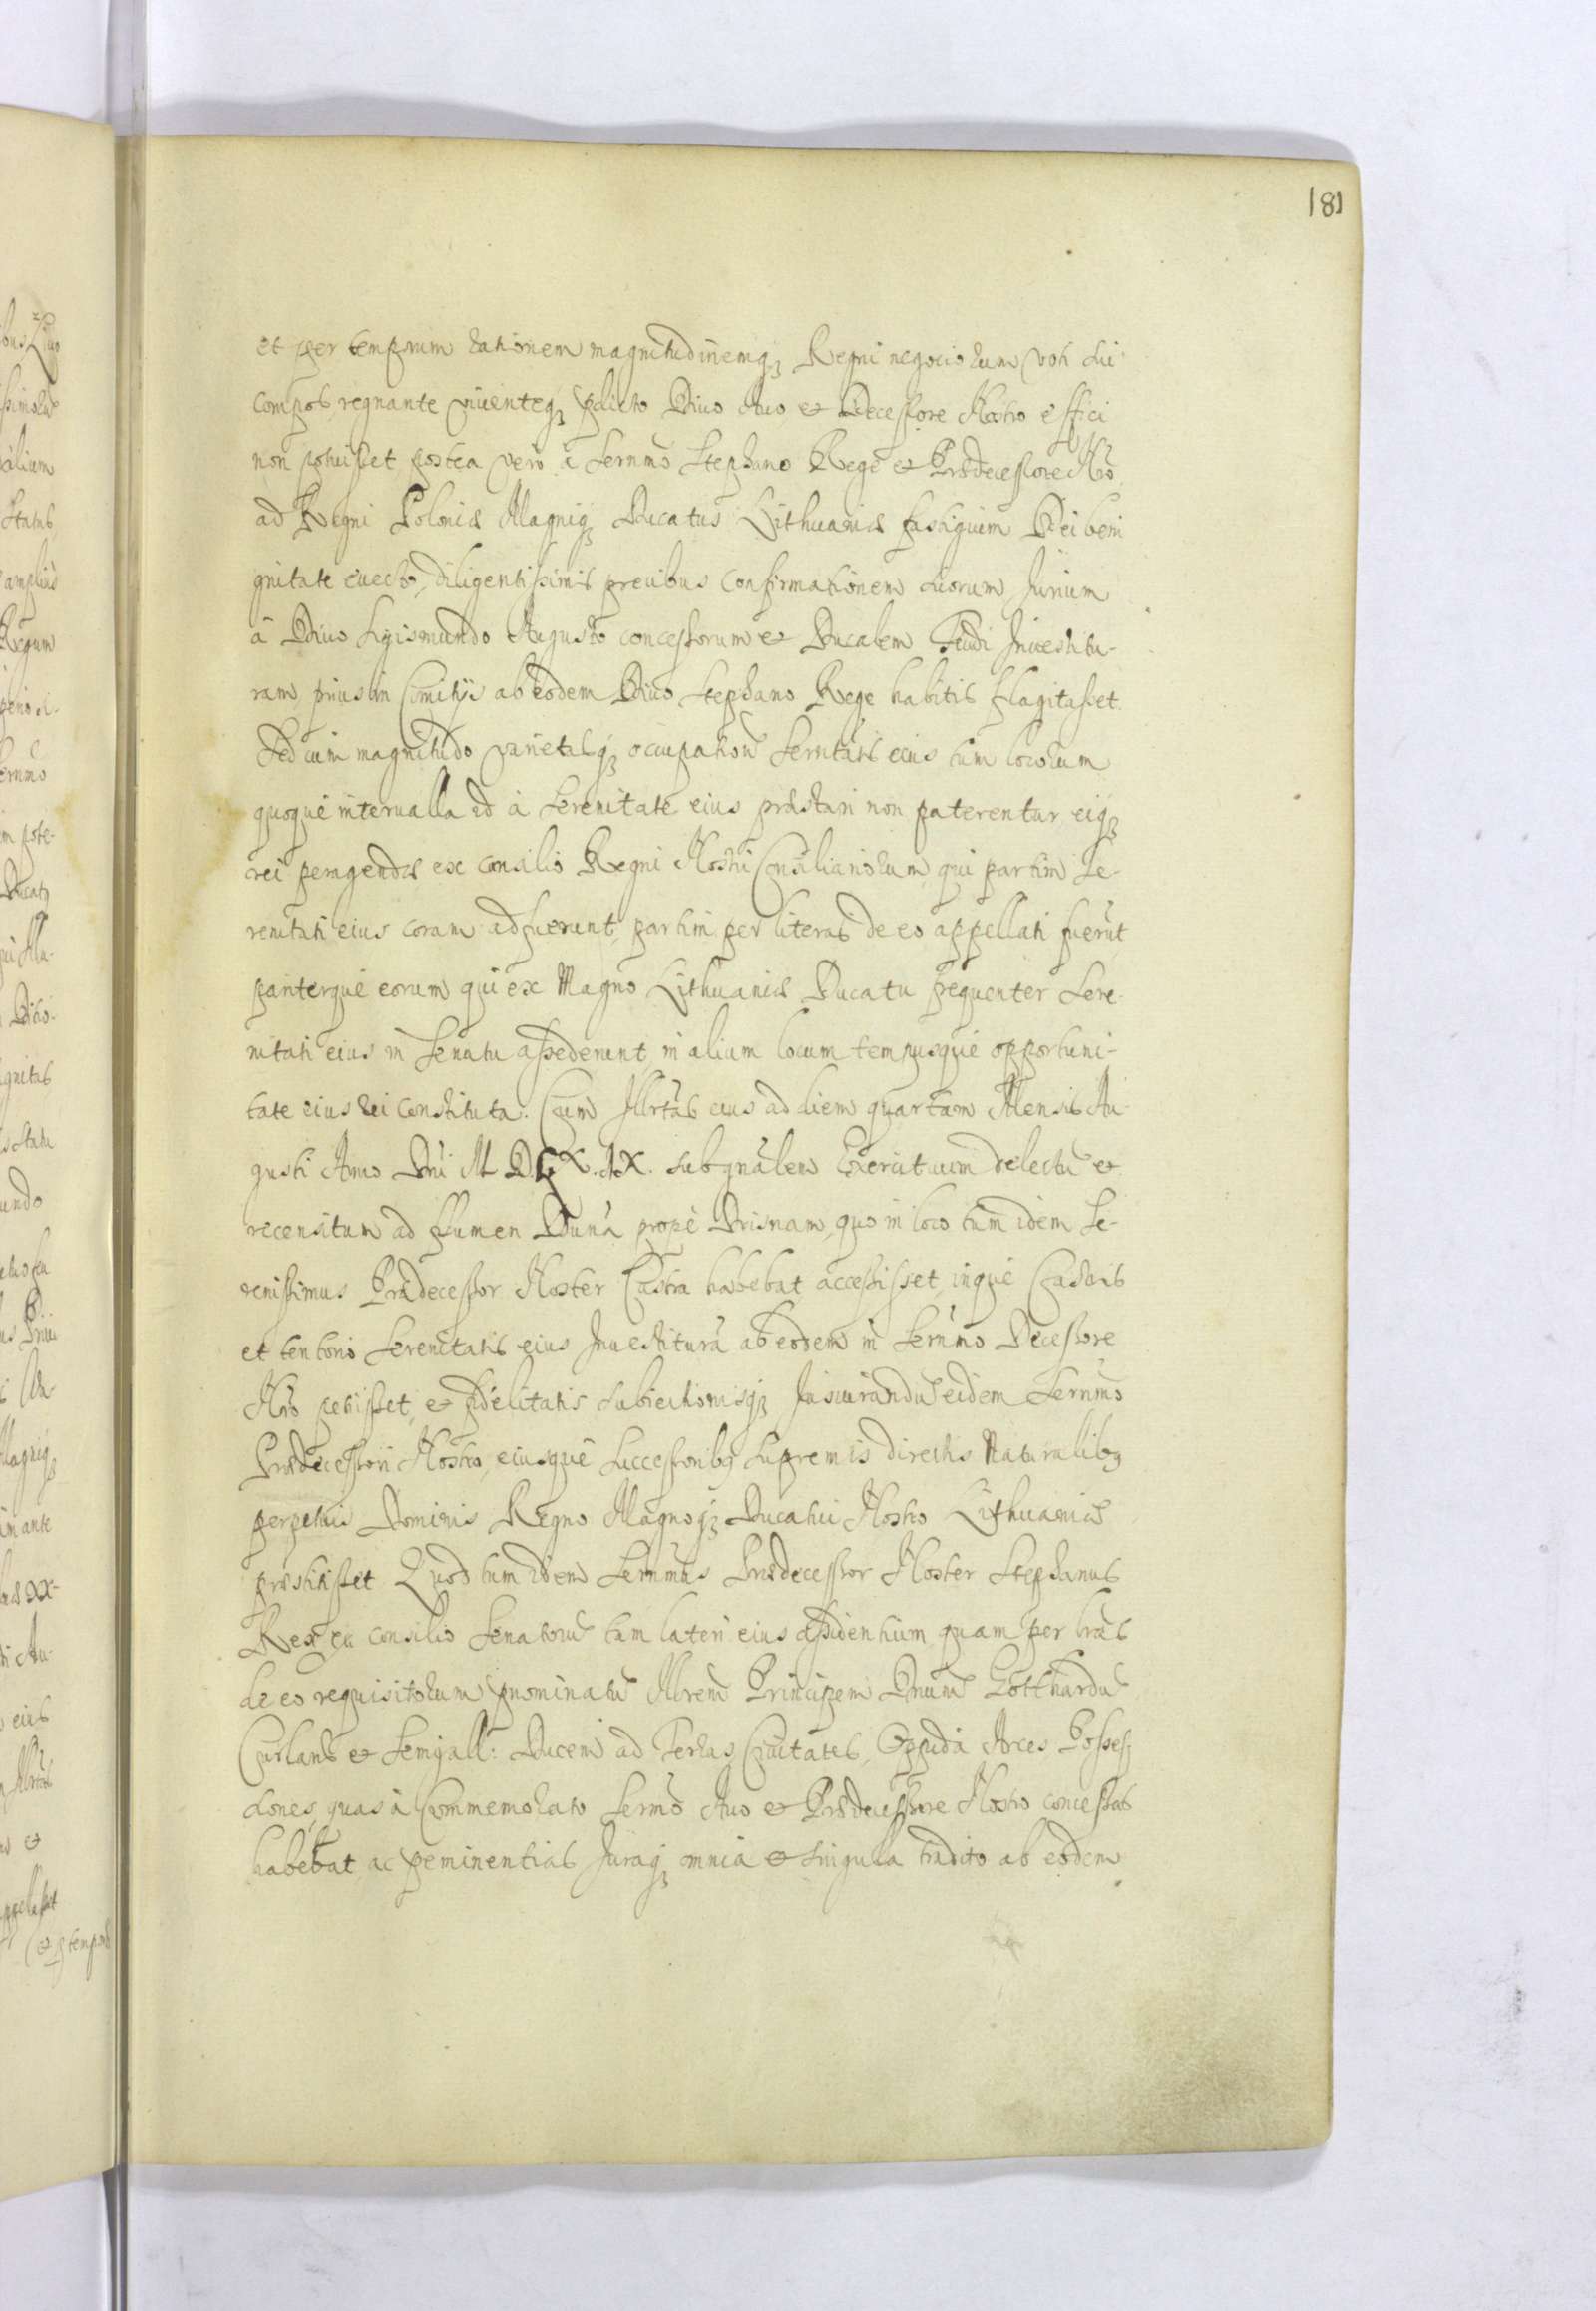 181
et per temporum rationem magnitudinemqꝫ Regni negociorum voti sui
compos, regnante viuenteqꝫ pdicto Diuo Auo et Decessore Nostro effici
non potuisset, postea vero à Sernmo Stephano Rege et Prædecessore Nro
ad Regni Poloniæ Magniqꝫ Ducatus Lithuaniæ fastigium Dei beni
gnitate euecto, diligentissimis precibus confirmationem suorum Jurium
à Diuo Sigismundo Augusto concessorum et Ducalem Feudi Inuestitu-
ram prius in Comitijs ab eodem Diuo Stephano Rege habitis flagitasset.
Sed cum magnitudo varietasqꝫ occupationũ Serntatis eius tum locorum
quoque interualla id à Serenitate eius præstari non paterentur, eiqꝫ
rei peragendæ ex consilio Regni Nostri Consiliariorum, qui partim Se-
renitati eius coram adfuerunt, partim per literas de eo appellati fuerũt
pariterque eorum qui ex Magno Lithuaniæ Ducatu frequenter Sere-
nitati eius in Senatu assederunt, in alium locum tempusque opportuni-
tate eius rei constituta. Cum Illrtas eius ad diem quartam Mensis Au-
gusti Anno Dni M D LXX.IX. sub gnalem Exercituum delectũ et
recensitum ad flumen Dunã prope Drisnam, quo in loco tum idem Se-
renissimus Prædecessor Noster Castra habebat, accessisset, inque Castris
et tentorio Serenitatis eius Inuestiturã ab eodem in Sernmo Decessore
Nro petisset, et fidelitatis subiectionisqꝫ Jusiurandũ eidem Sernmo
Prædecessori Nostro, eiusque Successoribꝫ supremis directis Naturalibꝫ
perpetuis Dominis Regno Magnoqꝫ Ducatui Nostro Lithuaniæ
præstitisset Quod tum idem Sernmus Prædecessor Noster Stephanus
Rex ex consilio Senatorũ tam lateri eius assidentium quam per lras
de eo requisitorum pnominatũ Illrem Principem Dnum Gotthardũ
Curlandiæ et Semigall: Ducem ad Terras, Ciuitates, Oppida Arces Posses-
siones, quas à Commemorato Sermo Auo et Prædecessore Nostro concessas
habebat, ac peminentias Juraqꝫ omnia et singula tradito ab eodem